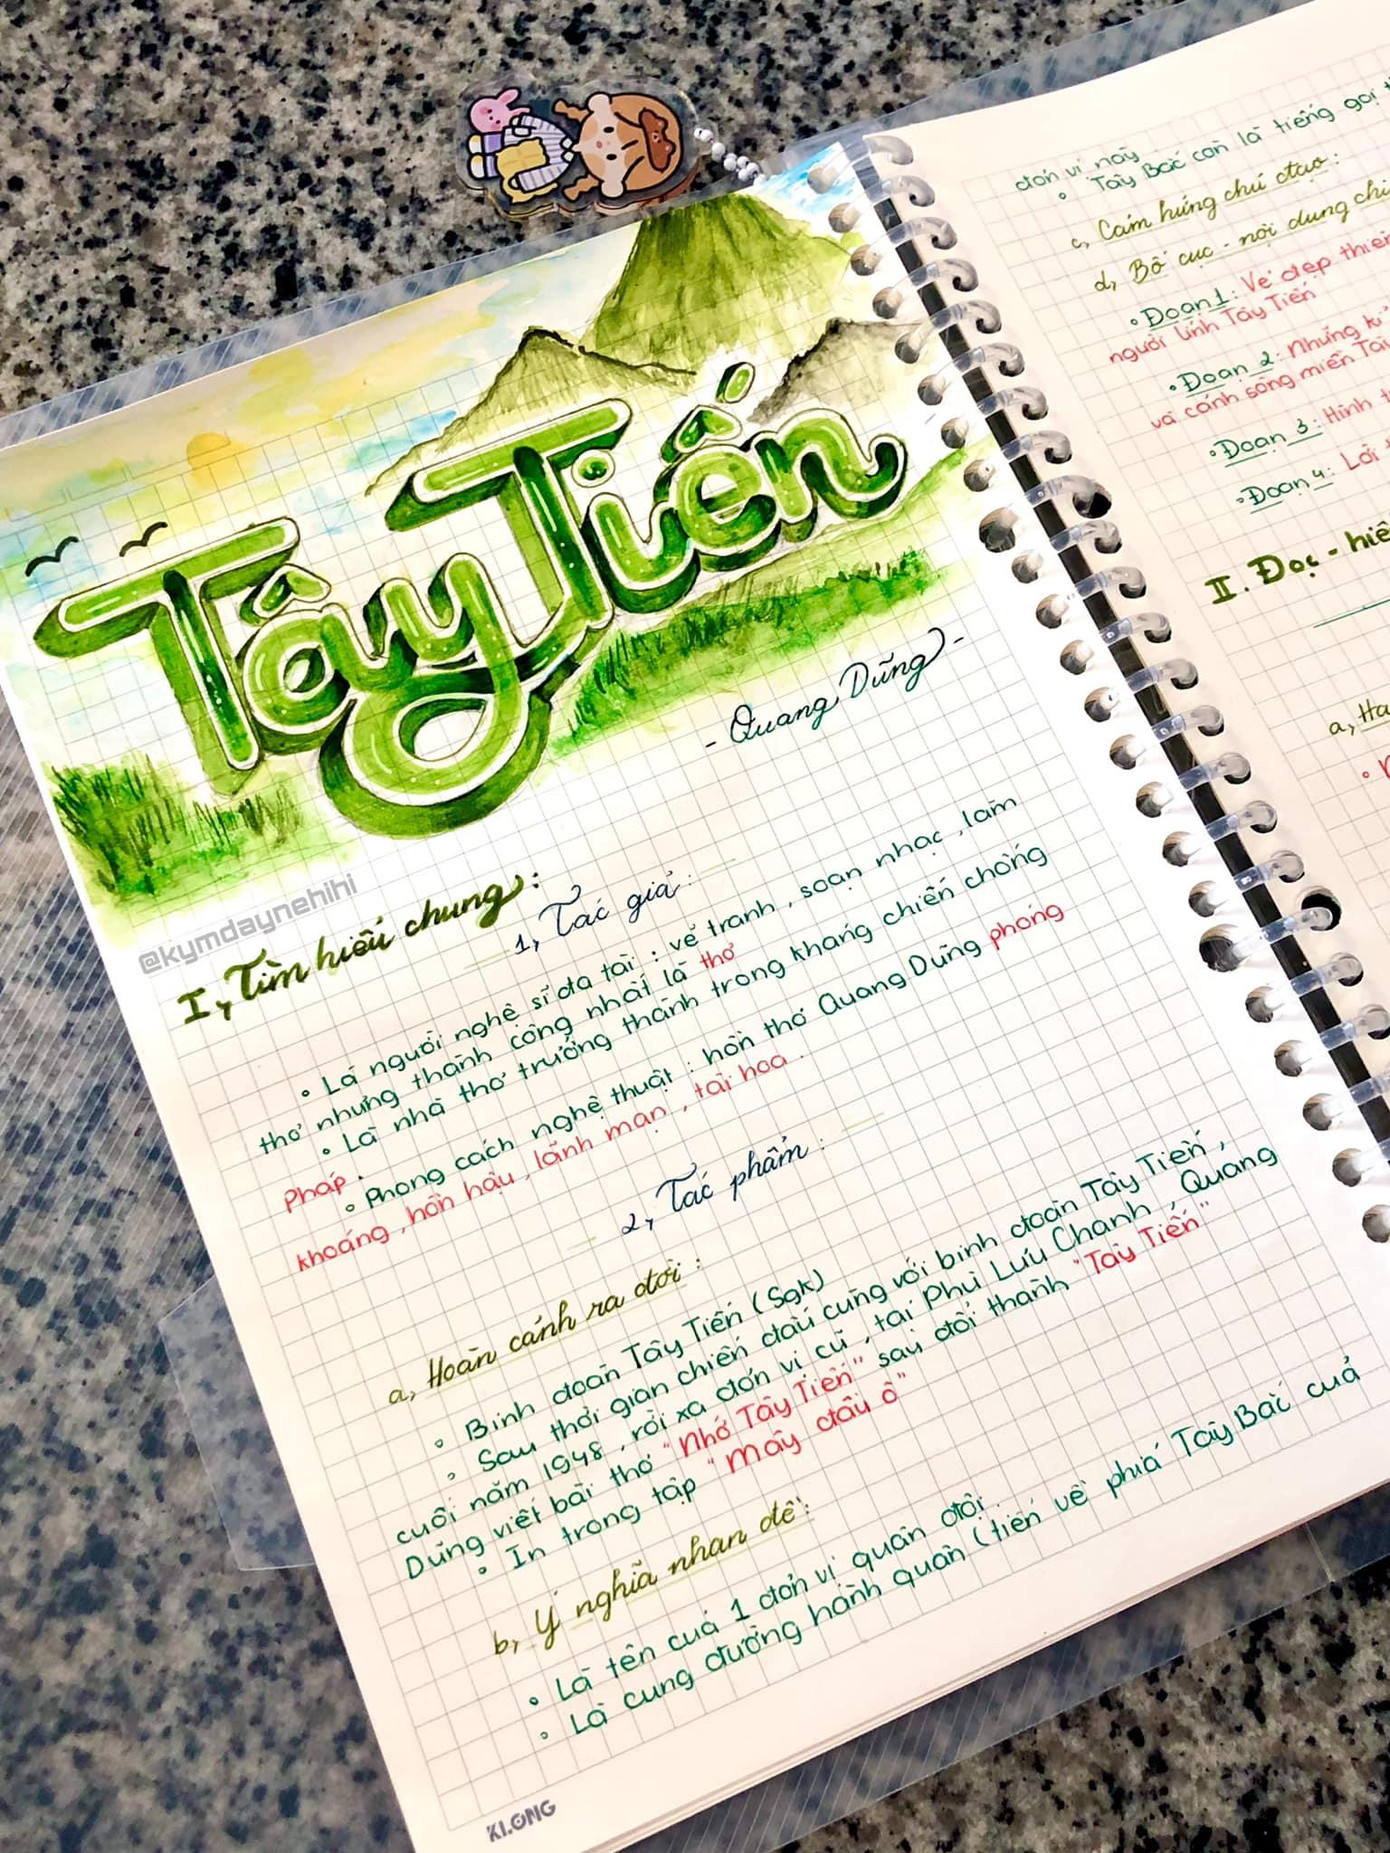 Tây Tiến
- Quang Dũng -
@kymdaynehihi
I, Tìm hiểu chung:
1, Tác giả:
• Là người nghệ sĩ đa tài: vẽ tranh, soạn nhạc, làm
thơ nhưng thành công nhất là thơ
• Là nhà thơ trưởng thành trong kháng chiến chống
Pháp.
• Phong cách nghệ thuật: hồn thơ Quang Dũng phóng
khoáng, hồn hậu, lãnh mạn, tài hoa.
2, Tác phẩm:
a, Hoàn cảnh ra đời:
• Binh đoàn Tây Tiến (Sgk)
• Sau thời gian chiến đấu cùng với binh đoàn Tây Tiến,
cuối năm 1948, rời xa đơn vị cũ, tại Phù Lưu Chanh, Quang
Dũng viết bài thơ "Nhớ Tây Tiến" sau đổi thành "Tây Tiến"
• In trong tập "Mây đầu ô"
b, Ý nghĩa nhan đề:
• Là tên của 1 đơn vị quân đội
• Là cung đường hành quân (tiến về phía Tây Bắc của
KLONG
đơn vị này
• Tây Bắc còn là tiếng gọi
c, Cảm hứng chủ đạo:
d, Bố cục - nội dung
• Đoạn 1: Vẻ đẹp
người lính Tây Tiến
• Đoạn 2: Những
và cảnh sông miền
• Đoạn 3: Hình
• Đoạn 4: Lời
II. Đọc -
a,